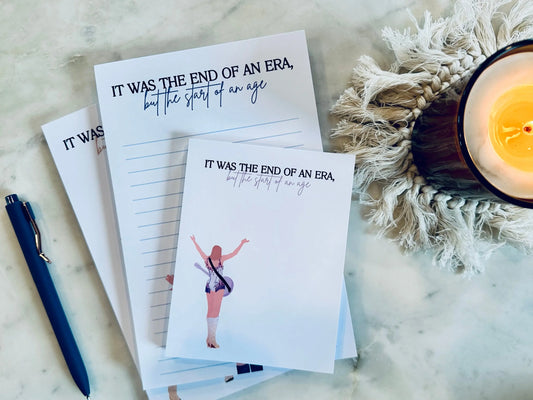 IT WAS THE END OF AN ERA,
but the start of an age
IT WAS THE END OF AN ERA,
but the start of an age
IT WAS